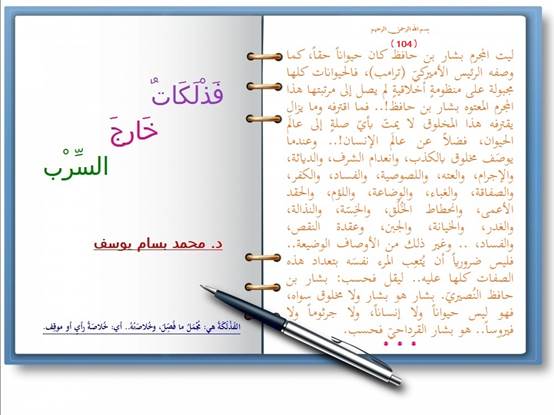 بسم الله الرحمن الرحيم
(104)
ليت المجرم بشار بن حافظ كان حيواناً حقاً، كما
وصفه الرئيس الأميركيّ (ترامب)، فالحيوانات كلها
مجبولة على منظومةٍ أخلاقيةٍ لم يصل إلى مرتبتها هذا
المجرم المعتوه بشار بن حافظ!.. فما اقترفه وما يزال
يقترفه هذا المخلوق لا يمتّ بأيّ صلةٍ إلى عالَم
الحيوان، فضلاً عن عالَم الإنسان!.. وعندما
يوصَف مخلوق بالكذب، وانعدام الشرف، والدياثة،
والإجرام، والعته، واللصوصية، والفساد، والكفر،
والصفاقة، والغباء، والوضاعة، واللؤم، والحقد
الأعمى، وانحطاط الخُلُق، والخِسّة، والنذالة،
والغدر، والخيانة، والجبن، وعقدة النقص،
والفساد، .. وغير ذلك من الأوصاف الوضيعة..
فليس ضرورياً أن يُتعِب المرء نفسَه بتعداد هذه
الصفات كلها عليه.. ليقل فحسب: بشار بن
حافظ النُصيريّ. بشار هو بشار ولا مخلوق سواه،
فهو ليس حيواناً ولا إنساناً، ولا جرثوماً ولا
فيروساً.. هو بشار القرداحيّ فحسب.
فَذْلَكَاتٌ
خَارجَ
السِّرْب
د. محمد بسام يوسف
الفَذْلَكَة هي: مُجْمَلُ ما فُصِّلَ، وخُلاصَتُهُ.. أي: خُلاصَةُ رَأيٍ أو موقِف.